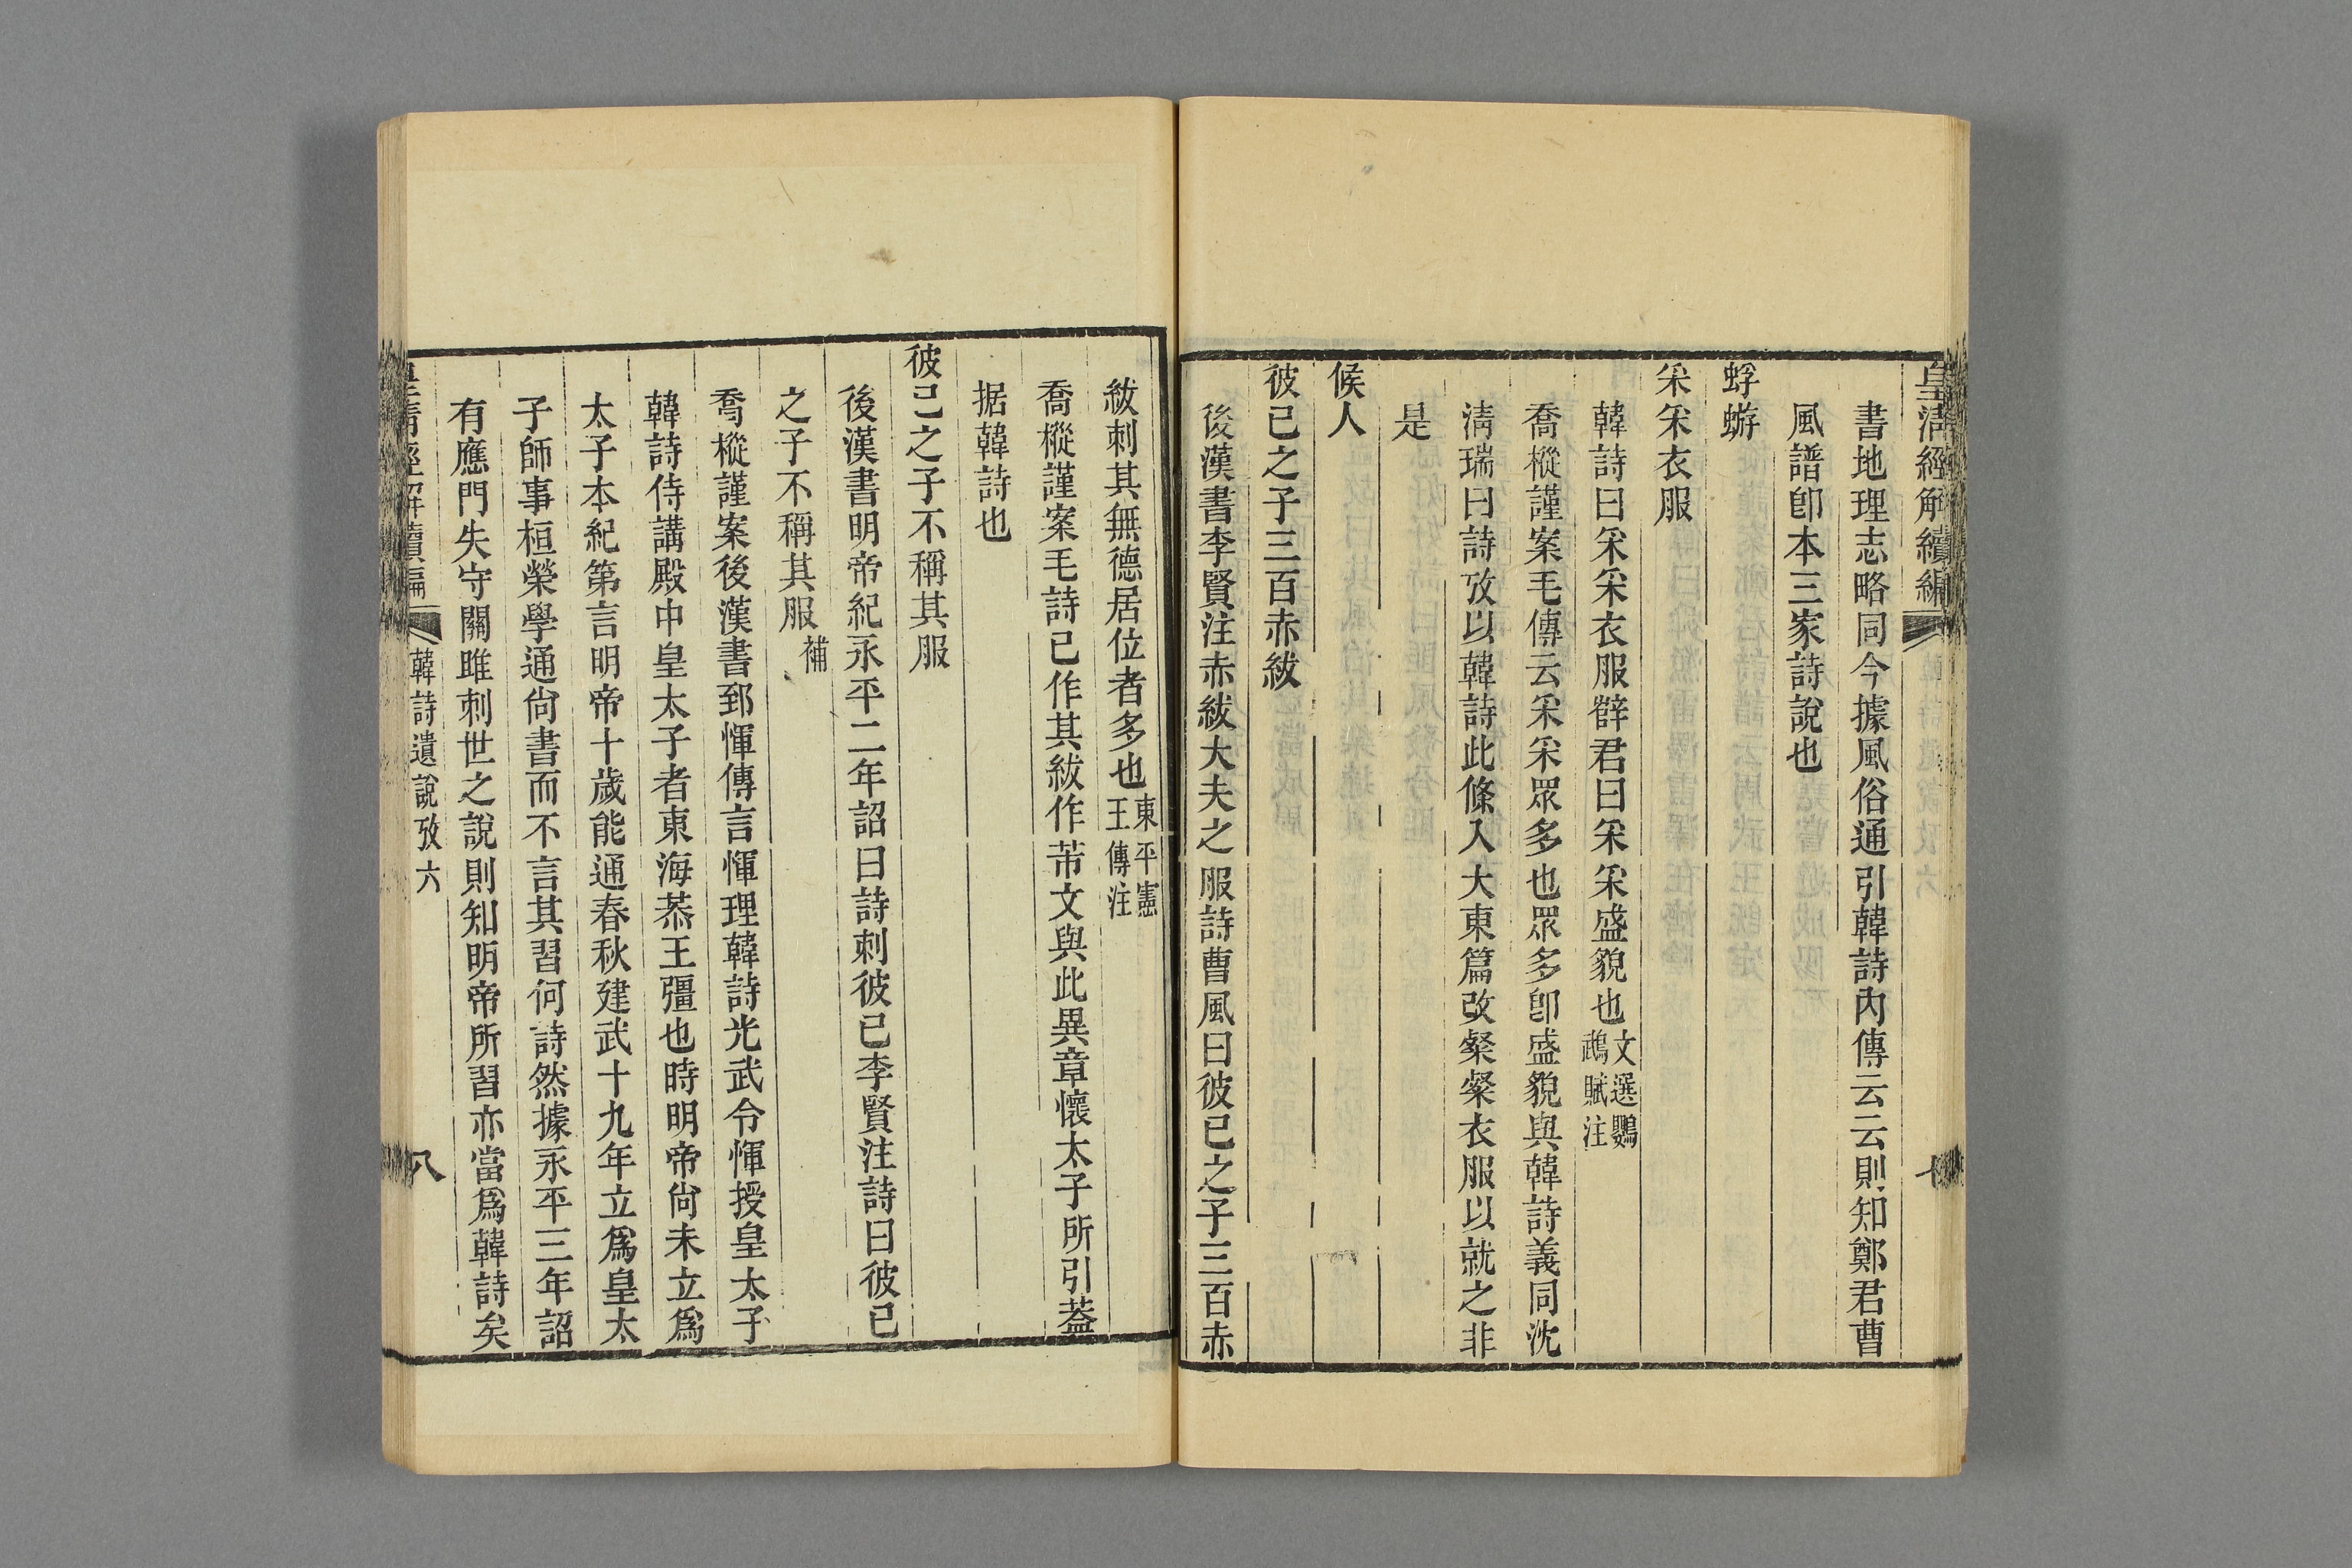 皇淸經解續編
書地理志略同今據風俗通引韓詩內傳云云則知鄭君曹
風譜卽本三家詩說也
蜉蝣
采采衣服
韓詩曰采采衣服薛君曰采采盛貌也文選鸚
鵡賦注
喬樅謹案毛傳云采采眾多也眾多卽盛貌與韓詩義同沈
淸瑞曰詩攷以韓詩此條入大東篇改粲粲衣服以就之非
是
候人
彼已之子三百赤紱
後漢書李賢注赤紱大夫之服詩曹風曰彼已之子三百赤
紱刺其無德居位者多也東平憲
王傳注
喬樅謹案毛詩已作其紱作芾文與此異章懷太子所引蓋
据韓詩也
彼己之子不稱其服
後漢書明帝紀永平二年詔曰詩刺彼已李賢注詩曰彼已
之子不稱其服補
喬樅謹案後漢書郅惲傳言惲理韓詩光武令惲授皇太子
韓詩侍講殿中皇太子者東海恭王彊也時明帝尙未立爲
太子本紀第言明帝十歲能通春秋建武十九年立爲皇太
子師事桓榮學通尙書而不言其習何詩然據永平三年詔
有應門失守關雎刺世之說則知明帝所習亦當爲韓詩矣
皇淸經解續編
韓詩遺說攷六
八